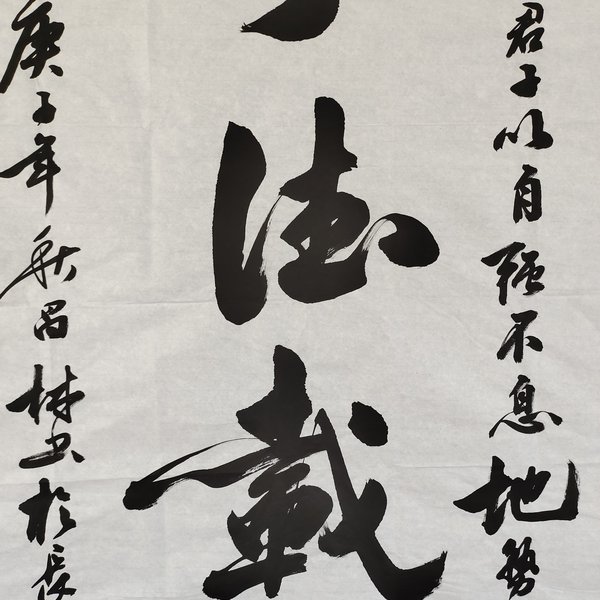 君子以自强不息地势
德载
庚子年秋昌林书于长